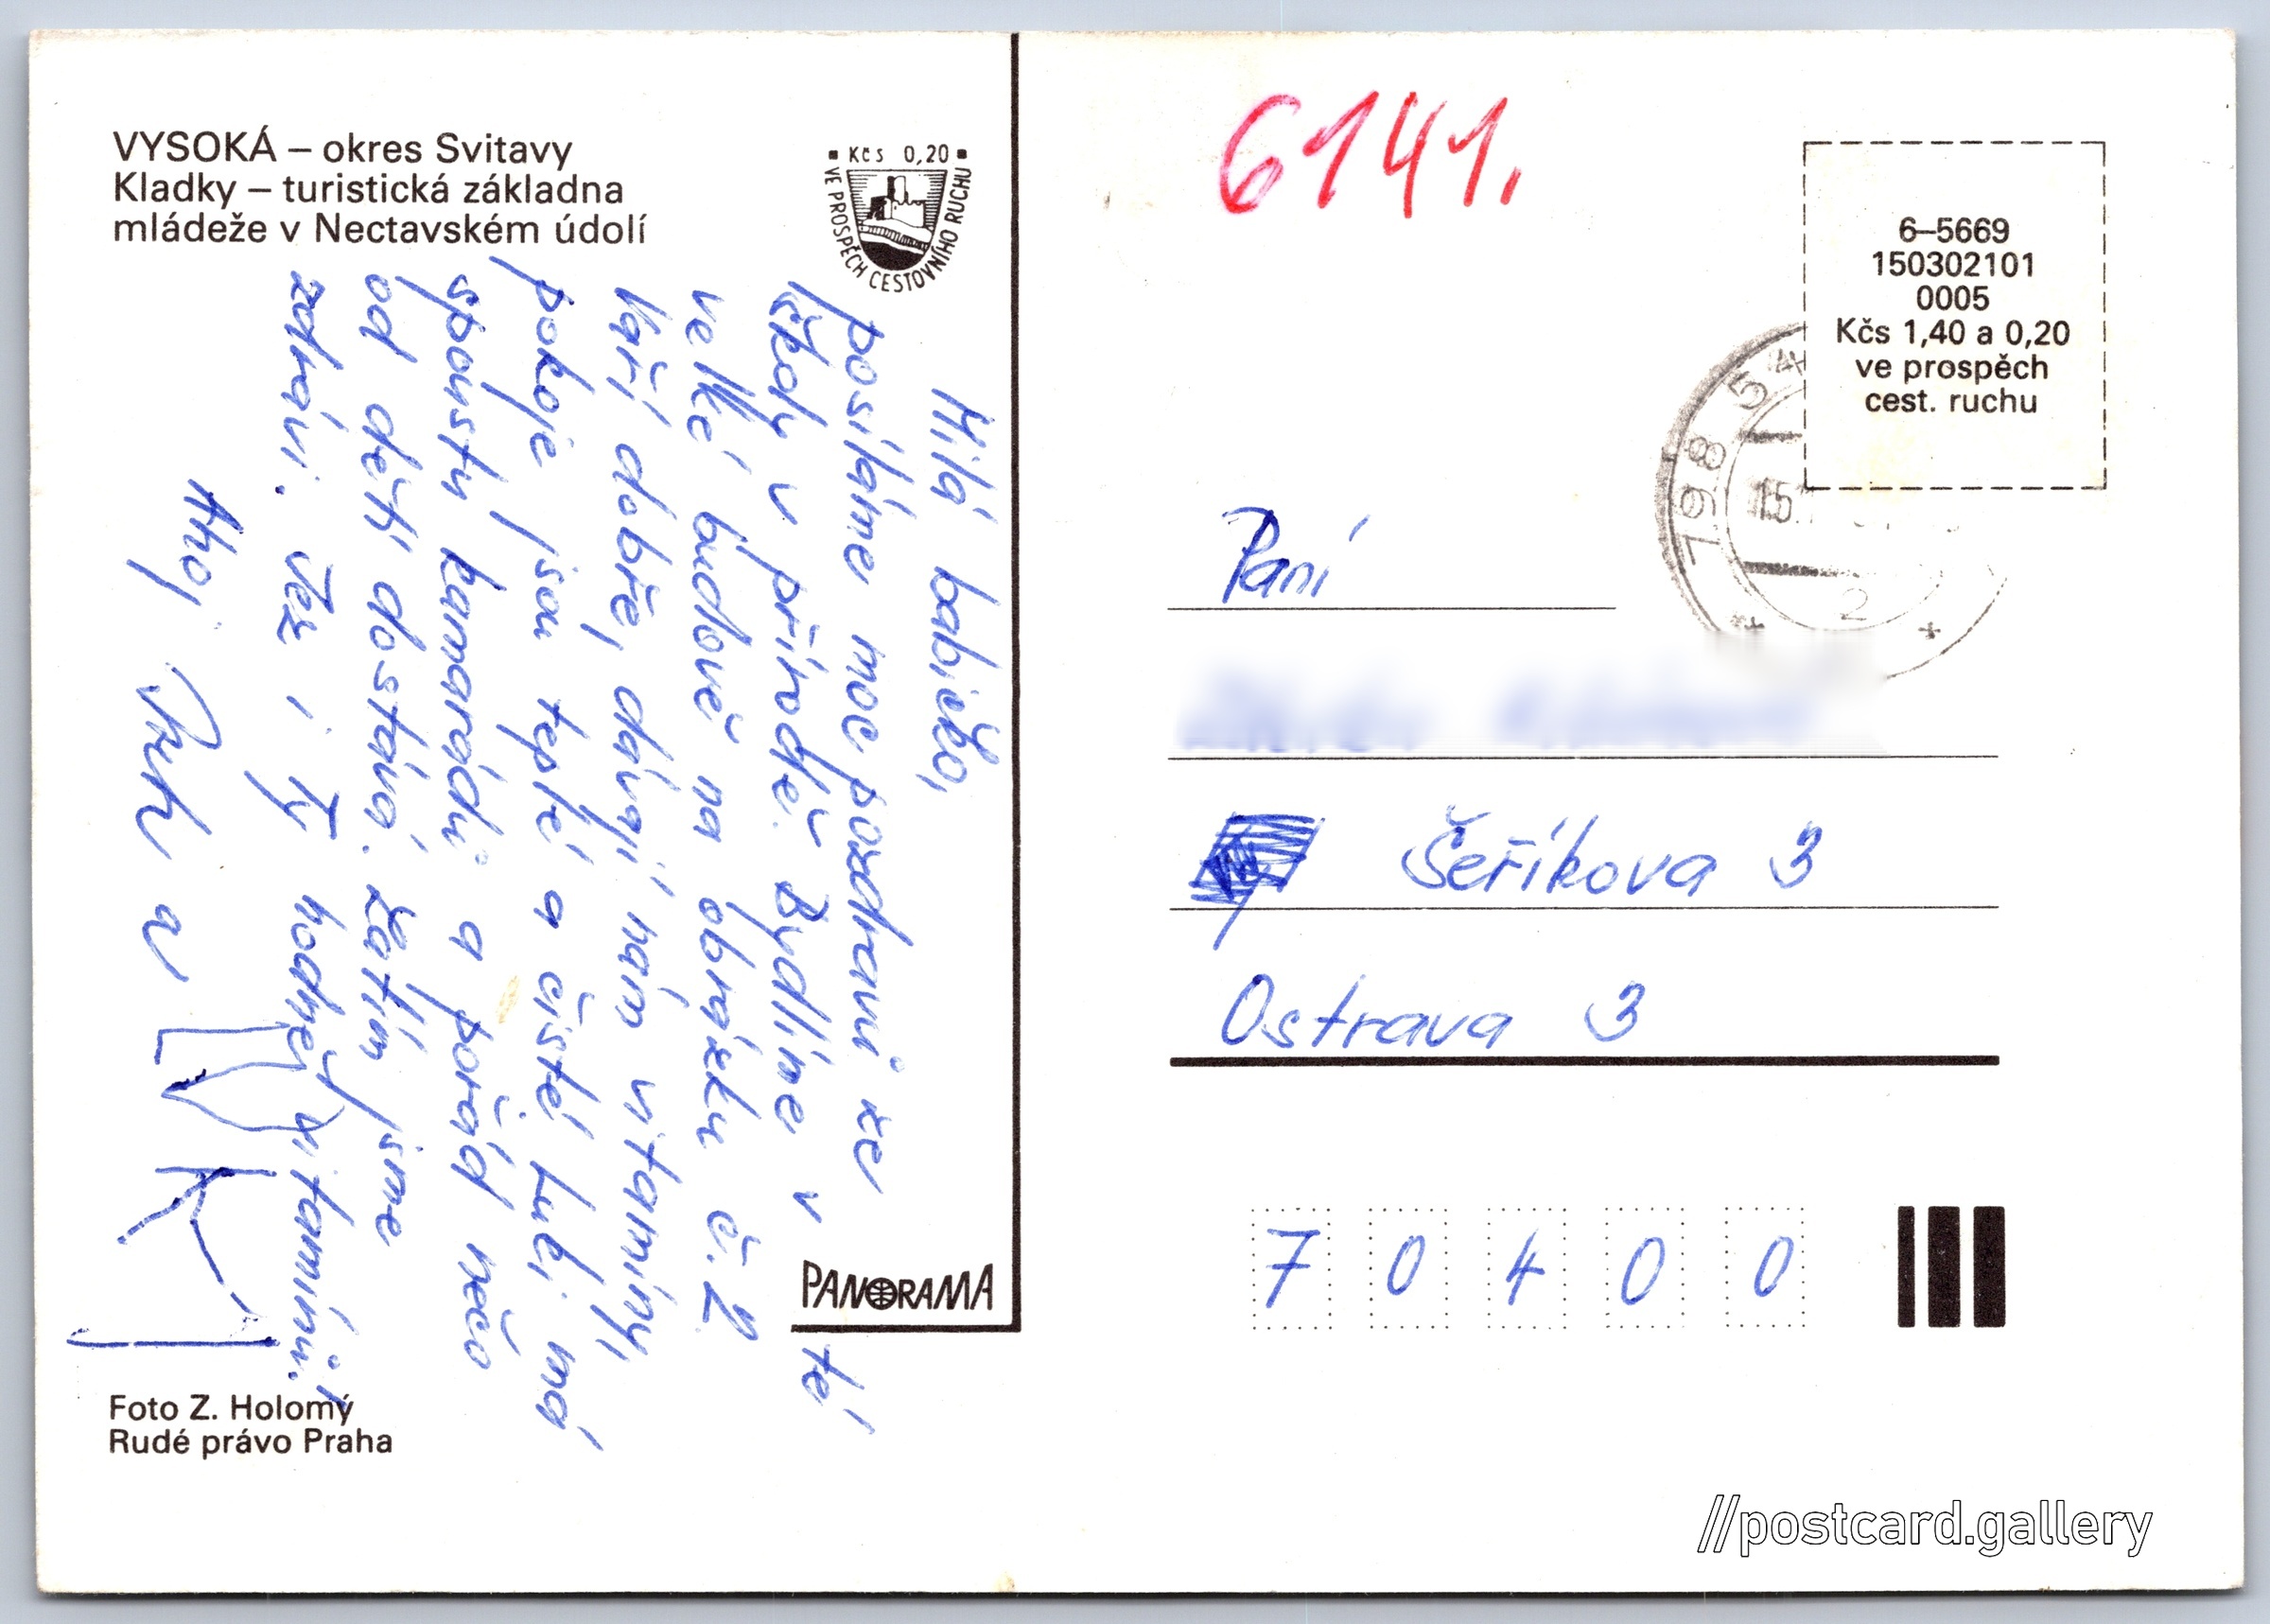 VYSOKÁ – okres Svitavy
Kladky – turistická základna
mládeže v Nectavském údolí
Kčs 0,20
VE PROSPĚCH CESTOVNÍHO RUCHU
Milá babičko,
posíláme moc pozdravů ze
školy v přírodě. Bydlíme v té
velké budově na obrázku č. 2.
Vaří dobře, dávají nám vitamíny,
pokoje jsou teplé a čisté. Luki má
spousty kamarádů a pořád něco
od dětí dostává. Zatím jsme
zdrávi. Jez i Ty hodně vitamínů.
Ahoj
a
Foto Z. Holomý
Rudé právo Praha
PANORAMA
6141.
6–5669
150302101
0005
Kčs 1,40 a 0,20
ve prospěch
cest. ruchu
798 54
15.
2
Paní
Šeříkova 3
Ostrava 3
7 0 4 0 0
//postcard.gallery